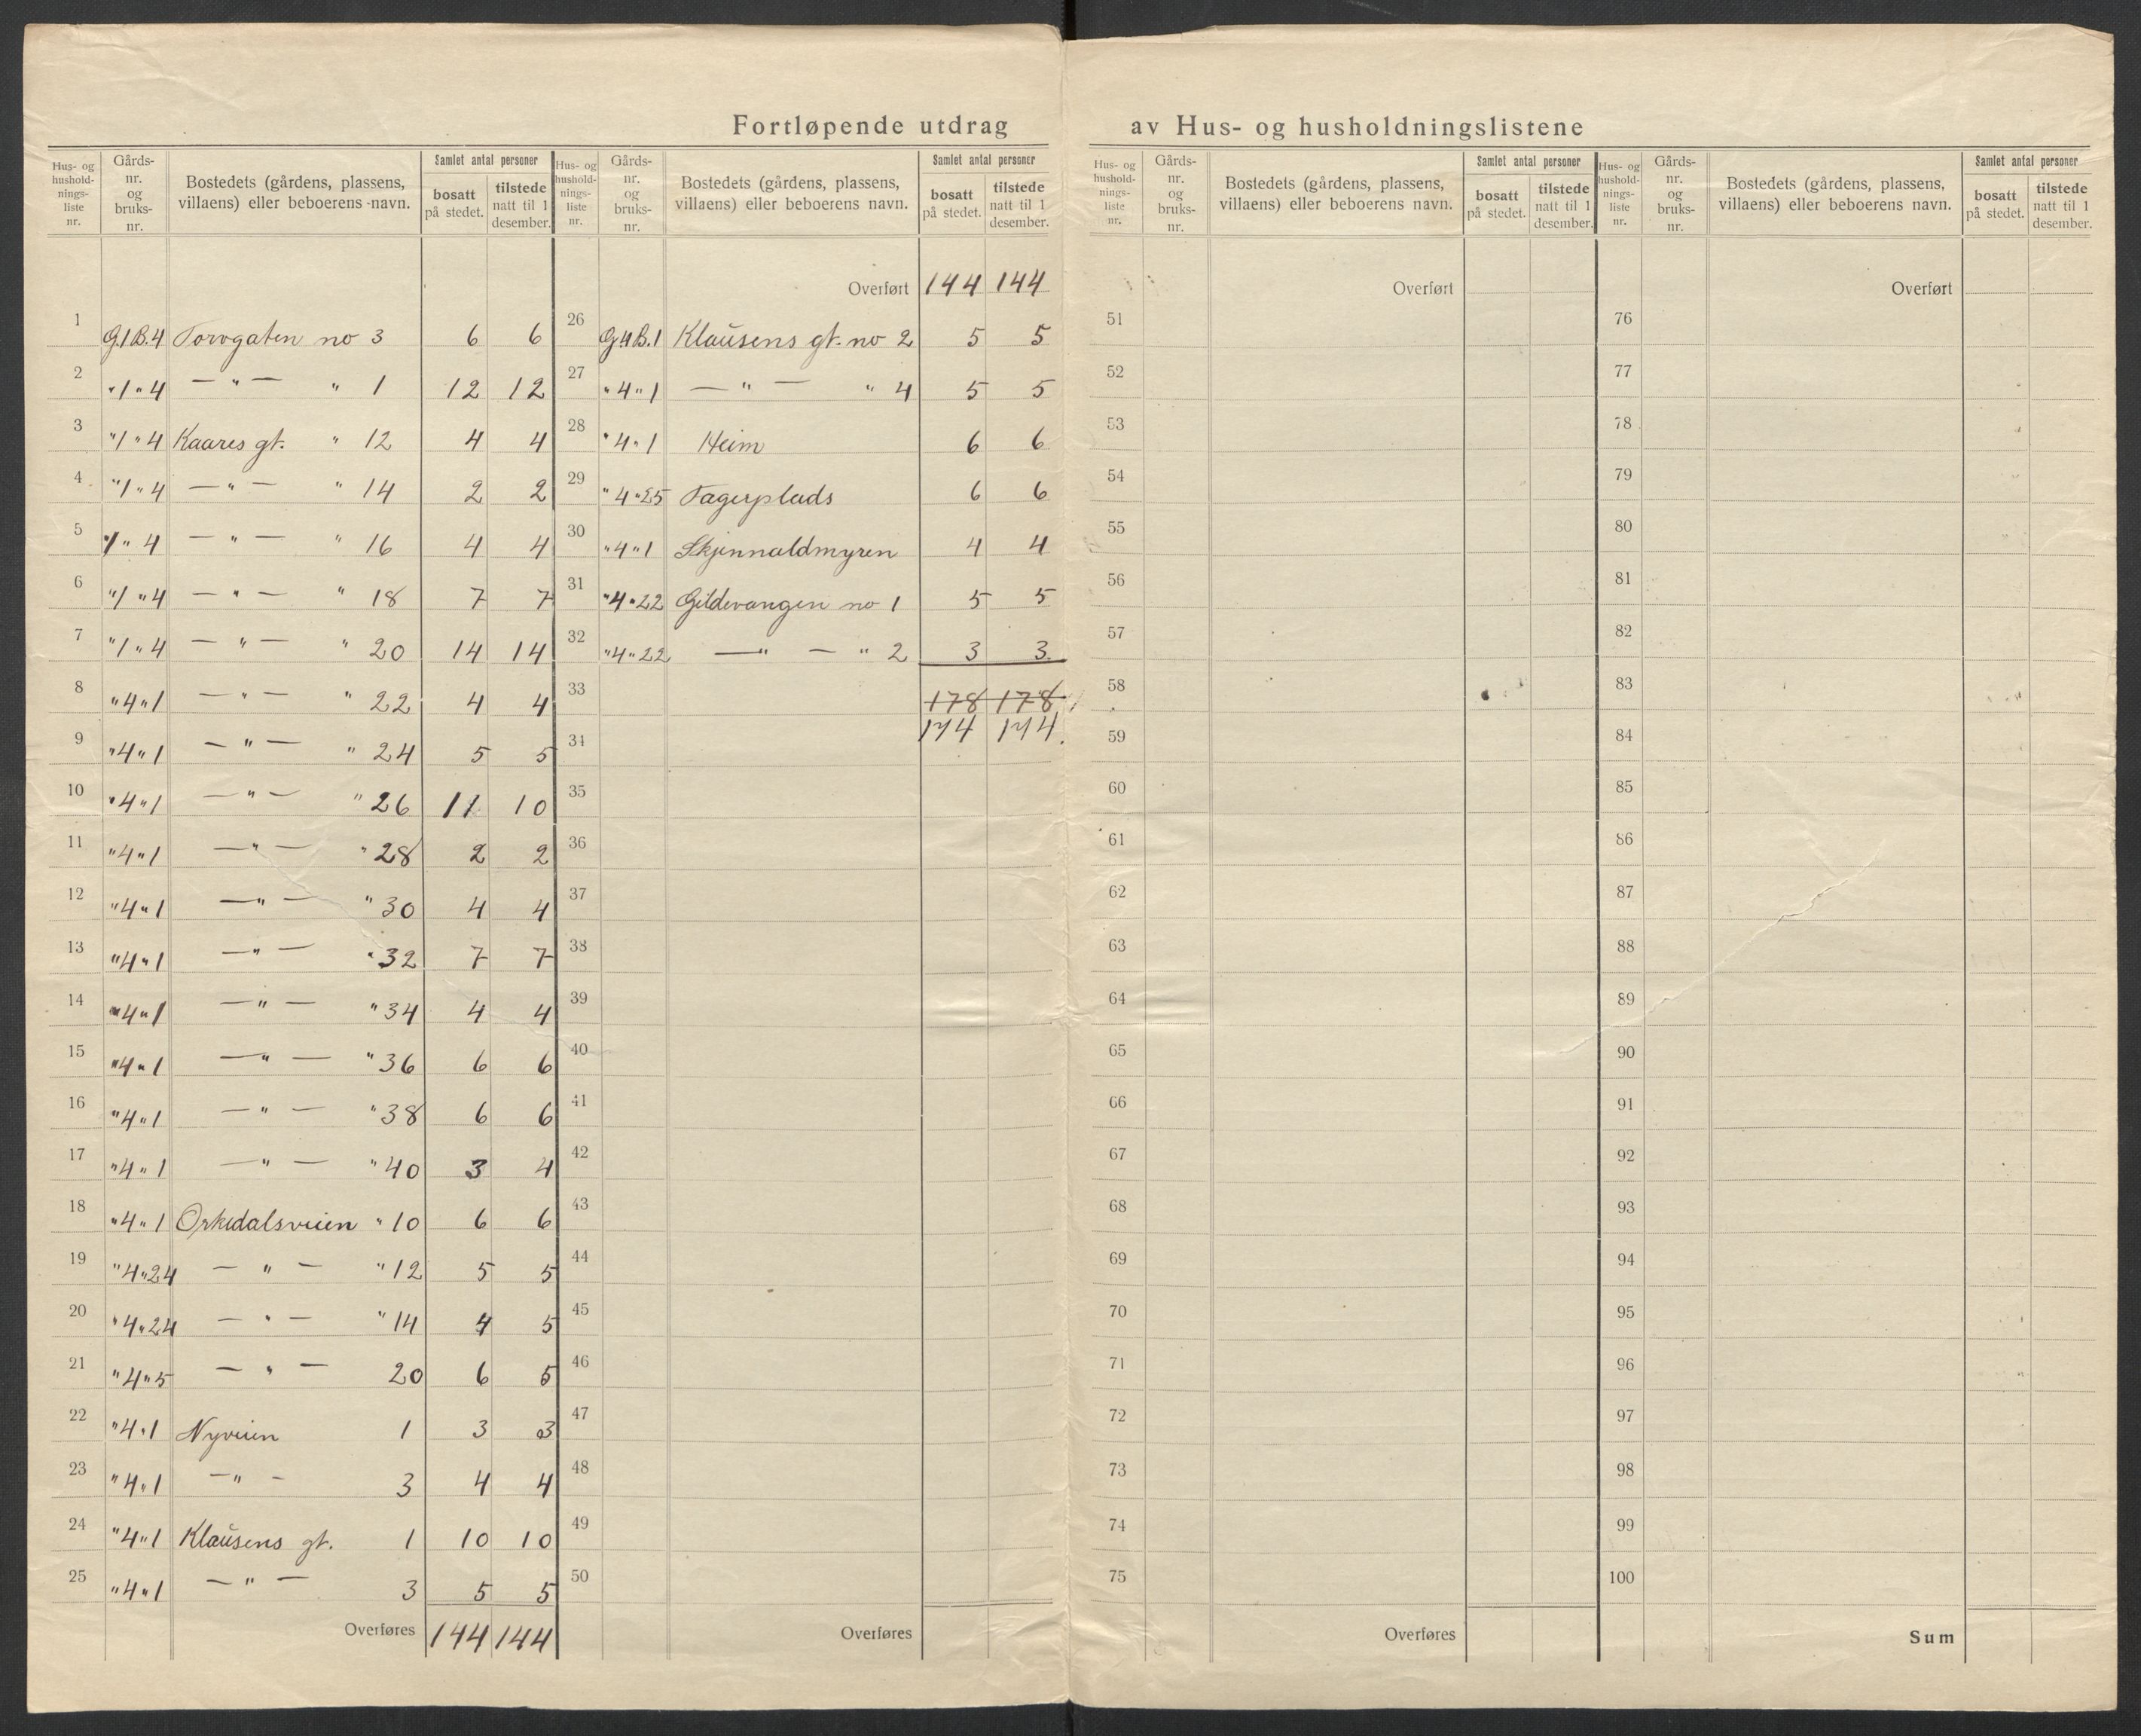 Fortløpende utdrag av Hus- og husholdningslistene
Hus- og hushold-nings-liste nr. Gårds-nr. og bruks-nr. Bostedets (gårdens, plassens, villaens) eller beboerens navn. Samlet antal personer bosatt på stedet. tilstede natt til 1 desember.
1 G.1 B.4 Torvgaten no 3 6 6
2 " 1 " 4 — " — " 1 12 12
3 " 1 " 4 Kaares gt. " 12 4 4
4 " 1 " 4 — " — " 14 2 2
5 " 1 " 4 — " — " 16 4 4
6 " 1 " 4 — " — " 18 7 7
7 " 1 " 4 — " — " 20 14 14
8 " 4 " 1 — " — " 22 4 4
9 " 4 " 1 — " — " 24 5 5
10 " 4 " 1 — " — " 26 11 10
11 " 4 " 1 — " — " 28 2 2
12 " 4 " 1 — " — " 30 4 4
13 " 4 " 1 — " — " 32 7 7
14 " 4 " 1 — " — " 34 4 4
15 " 4 " 1 — " — " 36 6 6
16 " 4 " 1 — " — " 38 6 6
17 " 4 " 1 — " — " 40 3 4
18 " 4 " 1 Orkedalsveien " 10 6 6
19 " 4 " 24 — " — " 12 5 5
20 " 4 " 24 — " — " 14 4 5
21 " 4 " 5 — " — 20 6 5
22 " 4 " 1 Nyveien 1 3 3
23 " 4 " 1 — " — 3 4 4
24 " 4 " 1 Klausens gt. 1 10 10
25 " 4 " 1 — " — 3 5 5
Overføres 144 144
Hus- og hushold-nings-liste nr. Gårds-nr. og bruks-nr. Bostedets (gårdens, plassens, villaens) eller beboerens navn. Samlet antal personer bosatt på stedet. tilstede natt til 1 desember.
Overført 144 144
26 G.4 B.1 Klausens gt. no 2 5 5
27 " 4 " 1 — " — " 4 5 5
28 " 4 " 1 Heim 6 6
29 " 4 " 25 Fagerplads 6 6
30 " 4 " 1 Skjinnaldmyren 4 4
31 " 4 " 22 Gildevangen no 1 5 5
32 " 4 " 22 — " — " 2 3 3
33 178 178
174 174
34
35
36
37
38
39
40
41
42
43
44
45
46
47
48
49
50
Overføres
Hus- og hushold-nings-liste nr. Gårds-nr. og bruks-nr. Bostedets (gårdens, plassens, villaens) eller beboerens navn. Samlet antal personer bosatt på stedet. tilstede natt til 1 desember.
Overført
51
52
53
54
55
56
57
58
59
60
61
62
63
64
65
66
67
68
69
70
71
72
73
74
75
Overføres
Hus- og hushold-nings-liste nr. Gårds-nr. og bruks-nr. Bostedets (gårdens, plassens, villaens) eller beboerens navn. Samlet antal personer bosatt på stedet. tilstede natt til 1 desember.
Overført
76
77
78
79
80
81
82
83
84
85
86
87
88
89
90
91
92
93
94
95
96
97
98
99
100
Sum